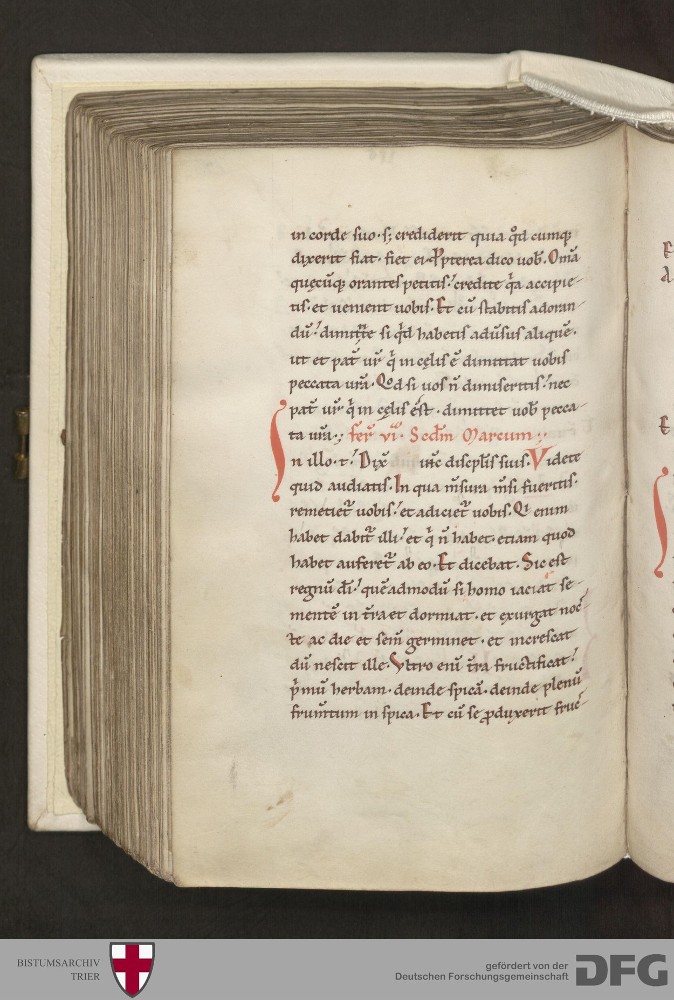 in corde suo· s; crediderit quia qd̊ cumq;
dixerit fiat· fiet ei· Ꝓpterea dico uob̄· Om̄a
quęcūq; orantes petitis· credite q̈a accipie-
tis· et uenient uobis· Et cū stabitis adoran-
dū· dimitt̄e si qd̊ habetis adūsus aliquē·
ut et pat̄ ur̄ q̇ in cęlis ē dimittat uobis
peccata ur̄a· Qd̊ si uos n̄ dimiseritis· nec
pat̄ ur̄ q̇ in cęlis ēst· dimittet uob̄ pecca-
ta ur̄a·, fer̄ vi· Scdm̄ Marcum·,
In illo· t· Dix̄ ihc̄ discipl̄is suis· Videte
quid audiatis· In qua m̄sura m̄si fueritis·
remetiet̄ uobis· et adiciet̄ uobis· Qi enim
habet dabit̄ illi· et q̇ n̄ habet· etiam quod
habet auferet̄ ab eo· Et dicebat· Sic est
regnū dī· quēadmodū si homo iaciat se-
mentē in t̄ra et dormiat· et exurgat noc-
te ac die et sem̄ germinet· et increscat
dū nescit ille· Vltro enī t̄ra fructificat·
ṗmū herbam· deinde spicā· deinde plenū
frum̄tum in spica· Et cū se ꝓduxerit fruc-
BISTUMSARCHIV
TRIER
gefördert von der
Deutschen Forschungsgemeinschaft
DFG